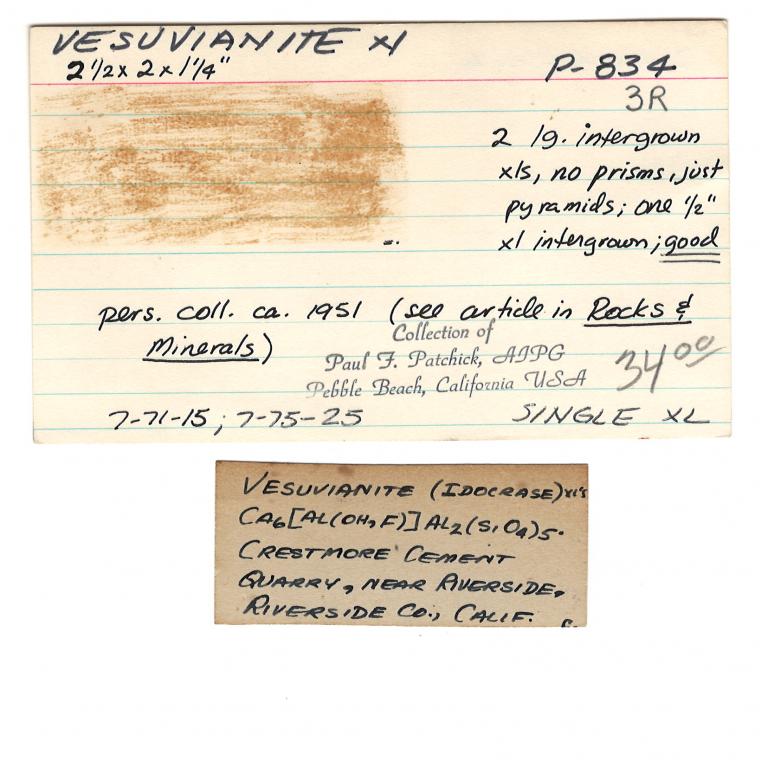 VESUVIANITE xl
2 1/2 x 2 x 1 1/4"
P-834
3R
2 lg. intergrown
xls, no prisms, just
pyramids; one 1/2"
xl intergrown; good
pers. coll. ca. 1951 (see article in Rocks &
Minerals)
Collection of
Paul F. Patchick, AIPG
Pebble Beach, California USA
34 00
7-71-15; 7-75-25
SINGLE XL
VESUVIANITE (IDOCRASE) xl's
CA6[AL(OH,F)]AL2(SiO4)5.
CRESTMORE CEMENT
QUARRY, NEAR RIVERSIDE,
RIVERSIDE CO., CALIF.